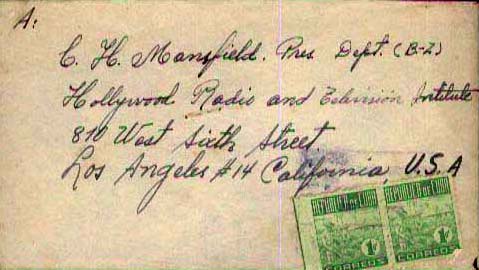 A:
C. H. Mansfield. Pres. Dept. (B-Z)
Hollywood Radio and Television Institute
810 West Sixth Street
Los Angeles #14 California, U.S.A
REPUBLICA DE CUBA REPUBLICA DE CUBA
1¢ 1¢
CORREOS CORREOS